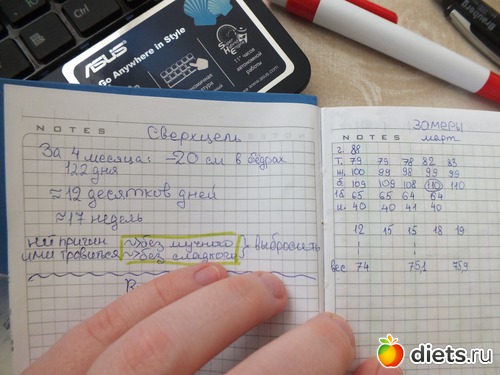 ASUS
Go Anywhere in Style
11+ часов
автономной
работы
NOTES
Сверхцель
За 4 месяца: -20 см в бёдрах
122 дня
≈12 десятков дней
≈17 недель
нет причин
ими травиться
без мучного
без сладкого
выбросить
NOTES
Замеры
март
г. 88
т. 79 79 78 82 83
ж. 100 98 99 99
б. 109 109 108 110 110
1б 65 65 64 64
и. 40 40 41 40
12 15 15 18 19
вес 74 75,1 75,9
diets.ru